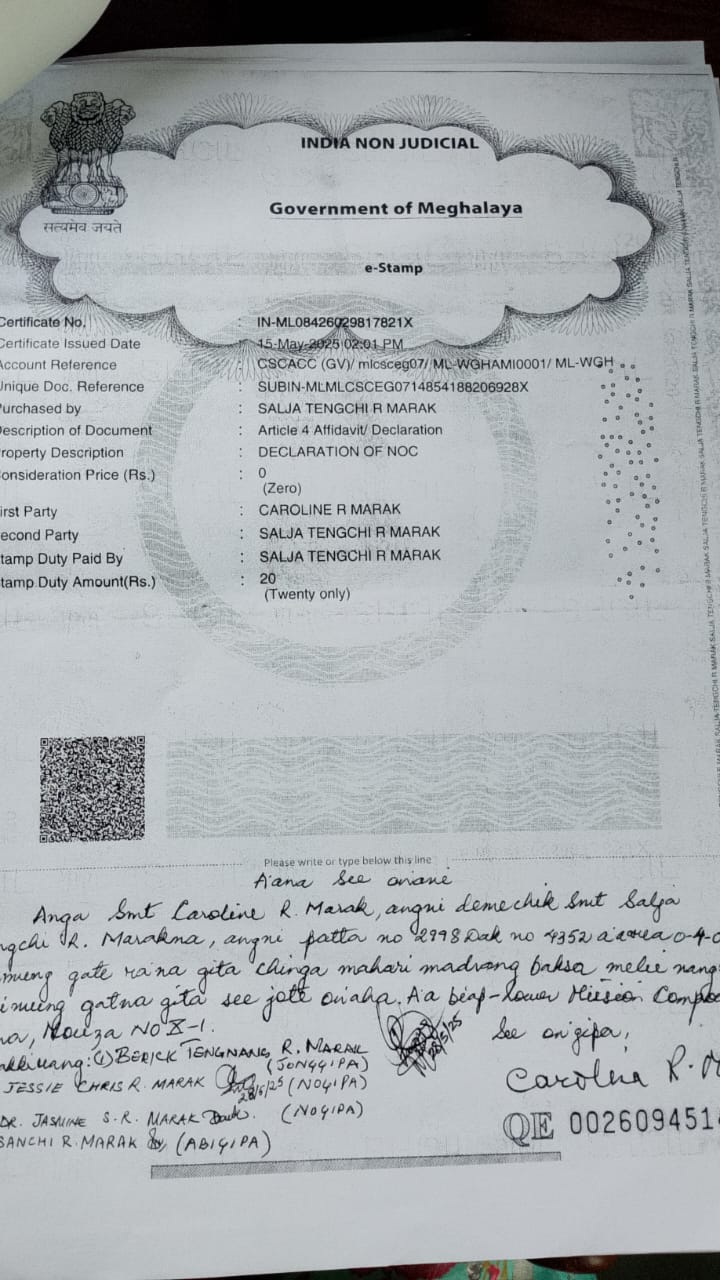 INDIA NON JUDICIAL
Government of Meghalaya
e-Stamp
सत्यमेव जयते
Certificate No. : IN-ML08426029817821X
Certificate Issued Date : 15-May-2025 02:01 PM
Account Reference : CSCACC (GV)/ mlcsceg07/ ML-WGHAMI0001/ ML-WGH
Unique Doc. Reference : SUBIN-MLMLCSCEG0714854188206928X
urchased by : SALJA TENGCHI R MARAK
escription of Document : Article 4 Affidavit/ Declaration
roperty Description : DECLARATION OF NOC
onsideration Price (Rs.) : 0
(Zero)
irst Party : CAROLINE R MARAK
econd Party : SALJA TENGCHI R MARAK
tamp Duty Paid By : SALJA TENGCHI R MARAK
tamp Duty Amount(Rs.) : 20
(Twenty only)
Please write or type below this line
A'ana See onani
Anga Smt Caroline R. Marak, angni demechik Smt Salja
ngchi R. Marakna, angni patta no 2998 Dak no 4352 a'area 0-4-0
gate ra'na gita chinga mahari madrang baksa melie nang
gatna gita see jote onaha. A'a biap-Lower Mission Compo
na, Mouza No X-1.
See on'gipa,
(1) BERICK TENGNANG R. MARAK
(JONGGIPA)
28/5/25
JESSIE CHRIS R. MARAK (NOGIPA)
28/5/25
Caroline R. M
DR. JASMINE S. R. MARAK (NOGIPA)
SANCHI R. MARAK (ABIGIPA)
QE 002609451